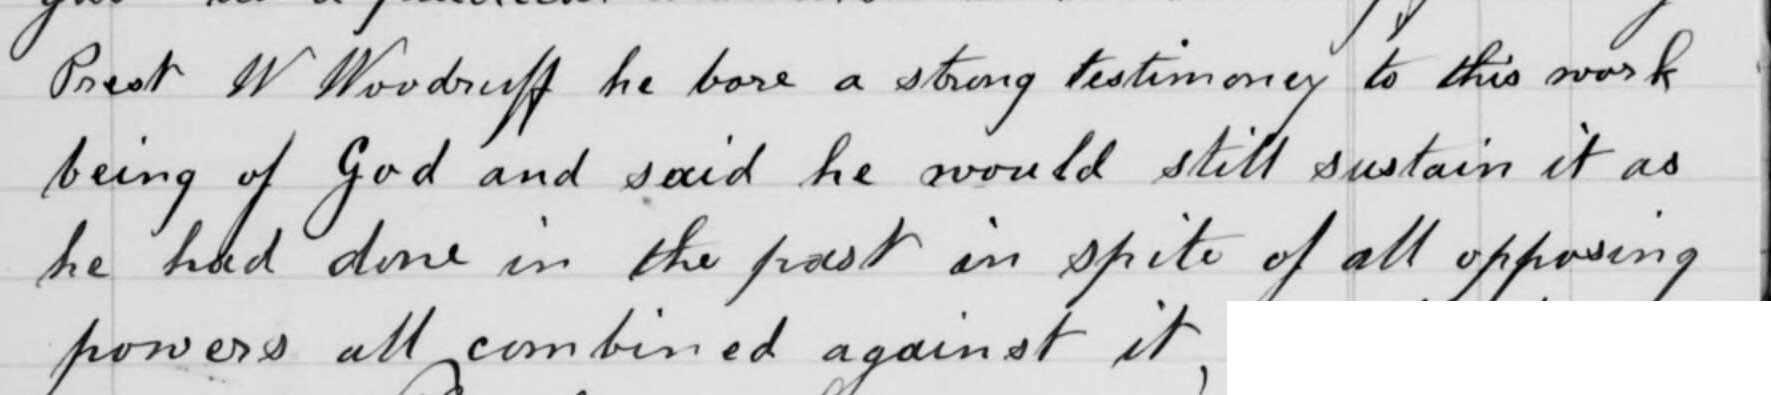 Prest W Woodruff he bore a strong testimoney to this work
being of God and said he would still sustain it as
he had done in the past in spite of all opposing
powers all combined against it,